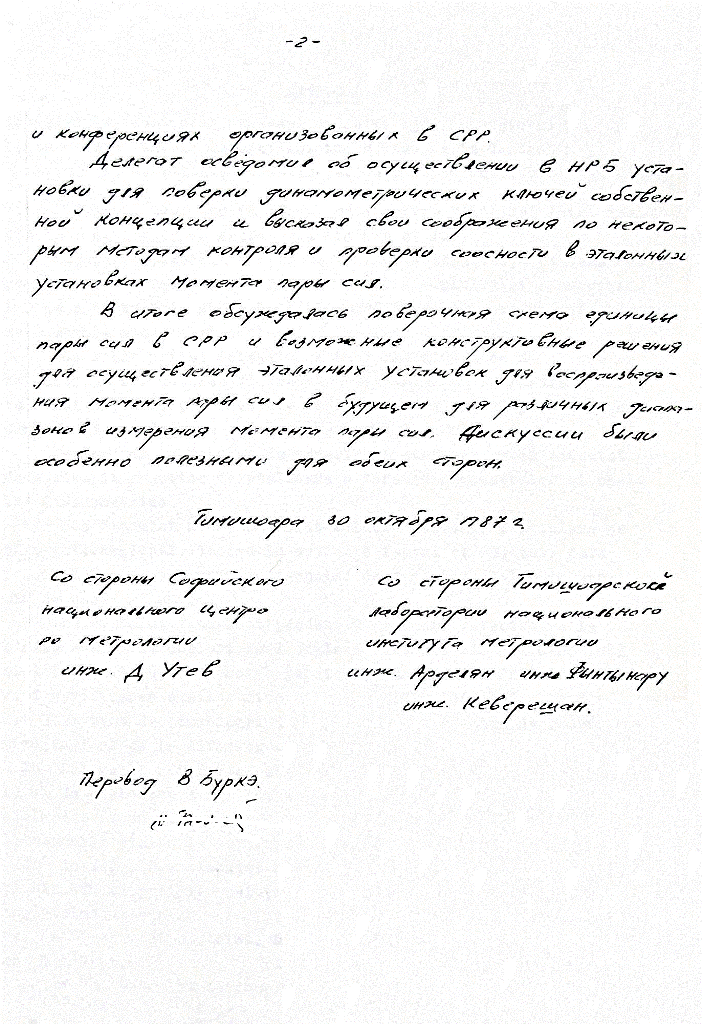 -2-
и конференциях организованных в СРР.
Делегат осведомил об осуществлении в НРБ уста-
новки для поверки динамометрических ключей собствен-
ной концепции и высказал свои соображения по некото-
рым методам контроля и проверки соосности в эталонных
установках момента пары сил.
В итоге обсуждалась поверочная схема единицы
пары сил в СРР и возможные конструктивные решения
для осуществления эталонных установок для воспроизведе-
ния момента пары сил в будущем для различных диапа-
зонов измерения момента пары сил. Дискуссии были
особенно полезными для обеих сторон.
Тимишоара 30 октября 1987 г.
Со стороны Софийского
национального центра
по метрологии
инж. Д Утев
Со стороны Тимишоарской
лаборатории национального
института метрологии
инж. Арделян инж Финтынару
инж. Кеверешан.
Перевод В Буркэ.